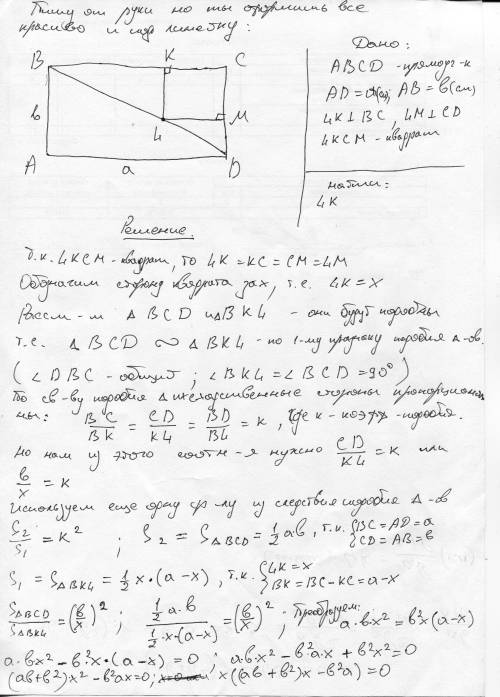 Пишу от руки но ты оформишь все
красиво и под линейку:
B K C
b 4 M
A a D
Дано:
ABCD - прямоуг-к
AD = a(см), AB = b(см)
4K ⊥ BC, 4M ⊥ CD
4KCM - квадрат
найти:
4K
Решение
Т.к. 4KCM - квадрат, то 4K = KC = CM = 4M
Обозначим сторону квадрата за x, т.е. 4K = x
Рассм-м Δ BCD и Δ BK4 - они будут подобны
т.е. Δ BCD ∾ Δ BK4 - по 1-му признаку подобия Δ-ов.
(∠ DBC - общий; ∠ BK4 = ∠ BCD = 90°)
По св-ву подобия Δ сходственные стороны пропорциональ
ны: BC/BK = CD/K4 = BD/B4 = k, где k - коэфф-подобия.
Но нам из этого соотн-я нужно CD/K4 = k или
b/x = k
Используем еще одну ф-лу из следствия подобия Δ-ов
S₂/S₁ = k² ; S₂ = S ΔBCD = 1/2 ab, т.к. {BC = AD = a
{CD = AB = b
S₁ = S ΔBK4 = 1/2 x·(a-x), т.к. {4K = x
{BK = BC - KC = a-x
S ΔBCD / S ΔBK4 = (b/x)² ; 1/2 a·b / 1/2·x·(a-x) = (b/x)² ; Преобразуем: a·b·x² = b²x(a-x)
a·b·x² - b²·x·(a-x) = 0 ; a·b·x² - b²a·x + b²x² = 0
(ab+b²)x² - b²ax = 0; x((ab+b²)x - b²a) = 0